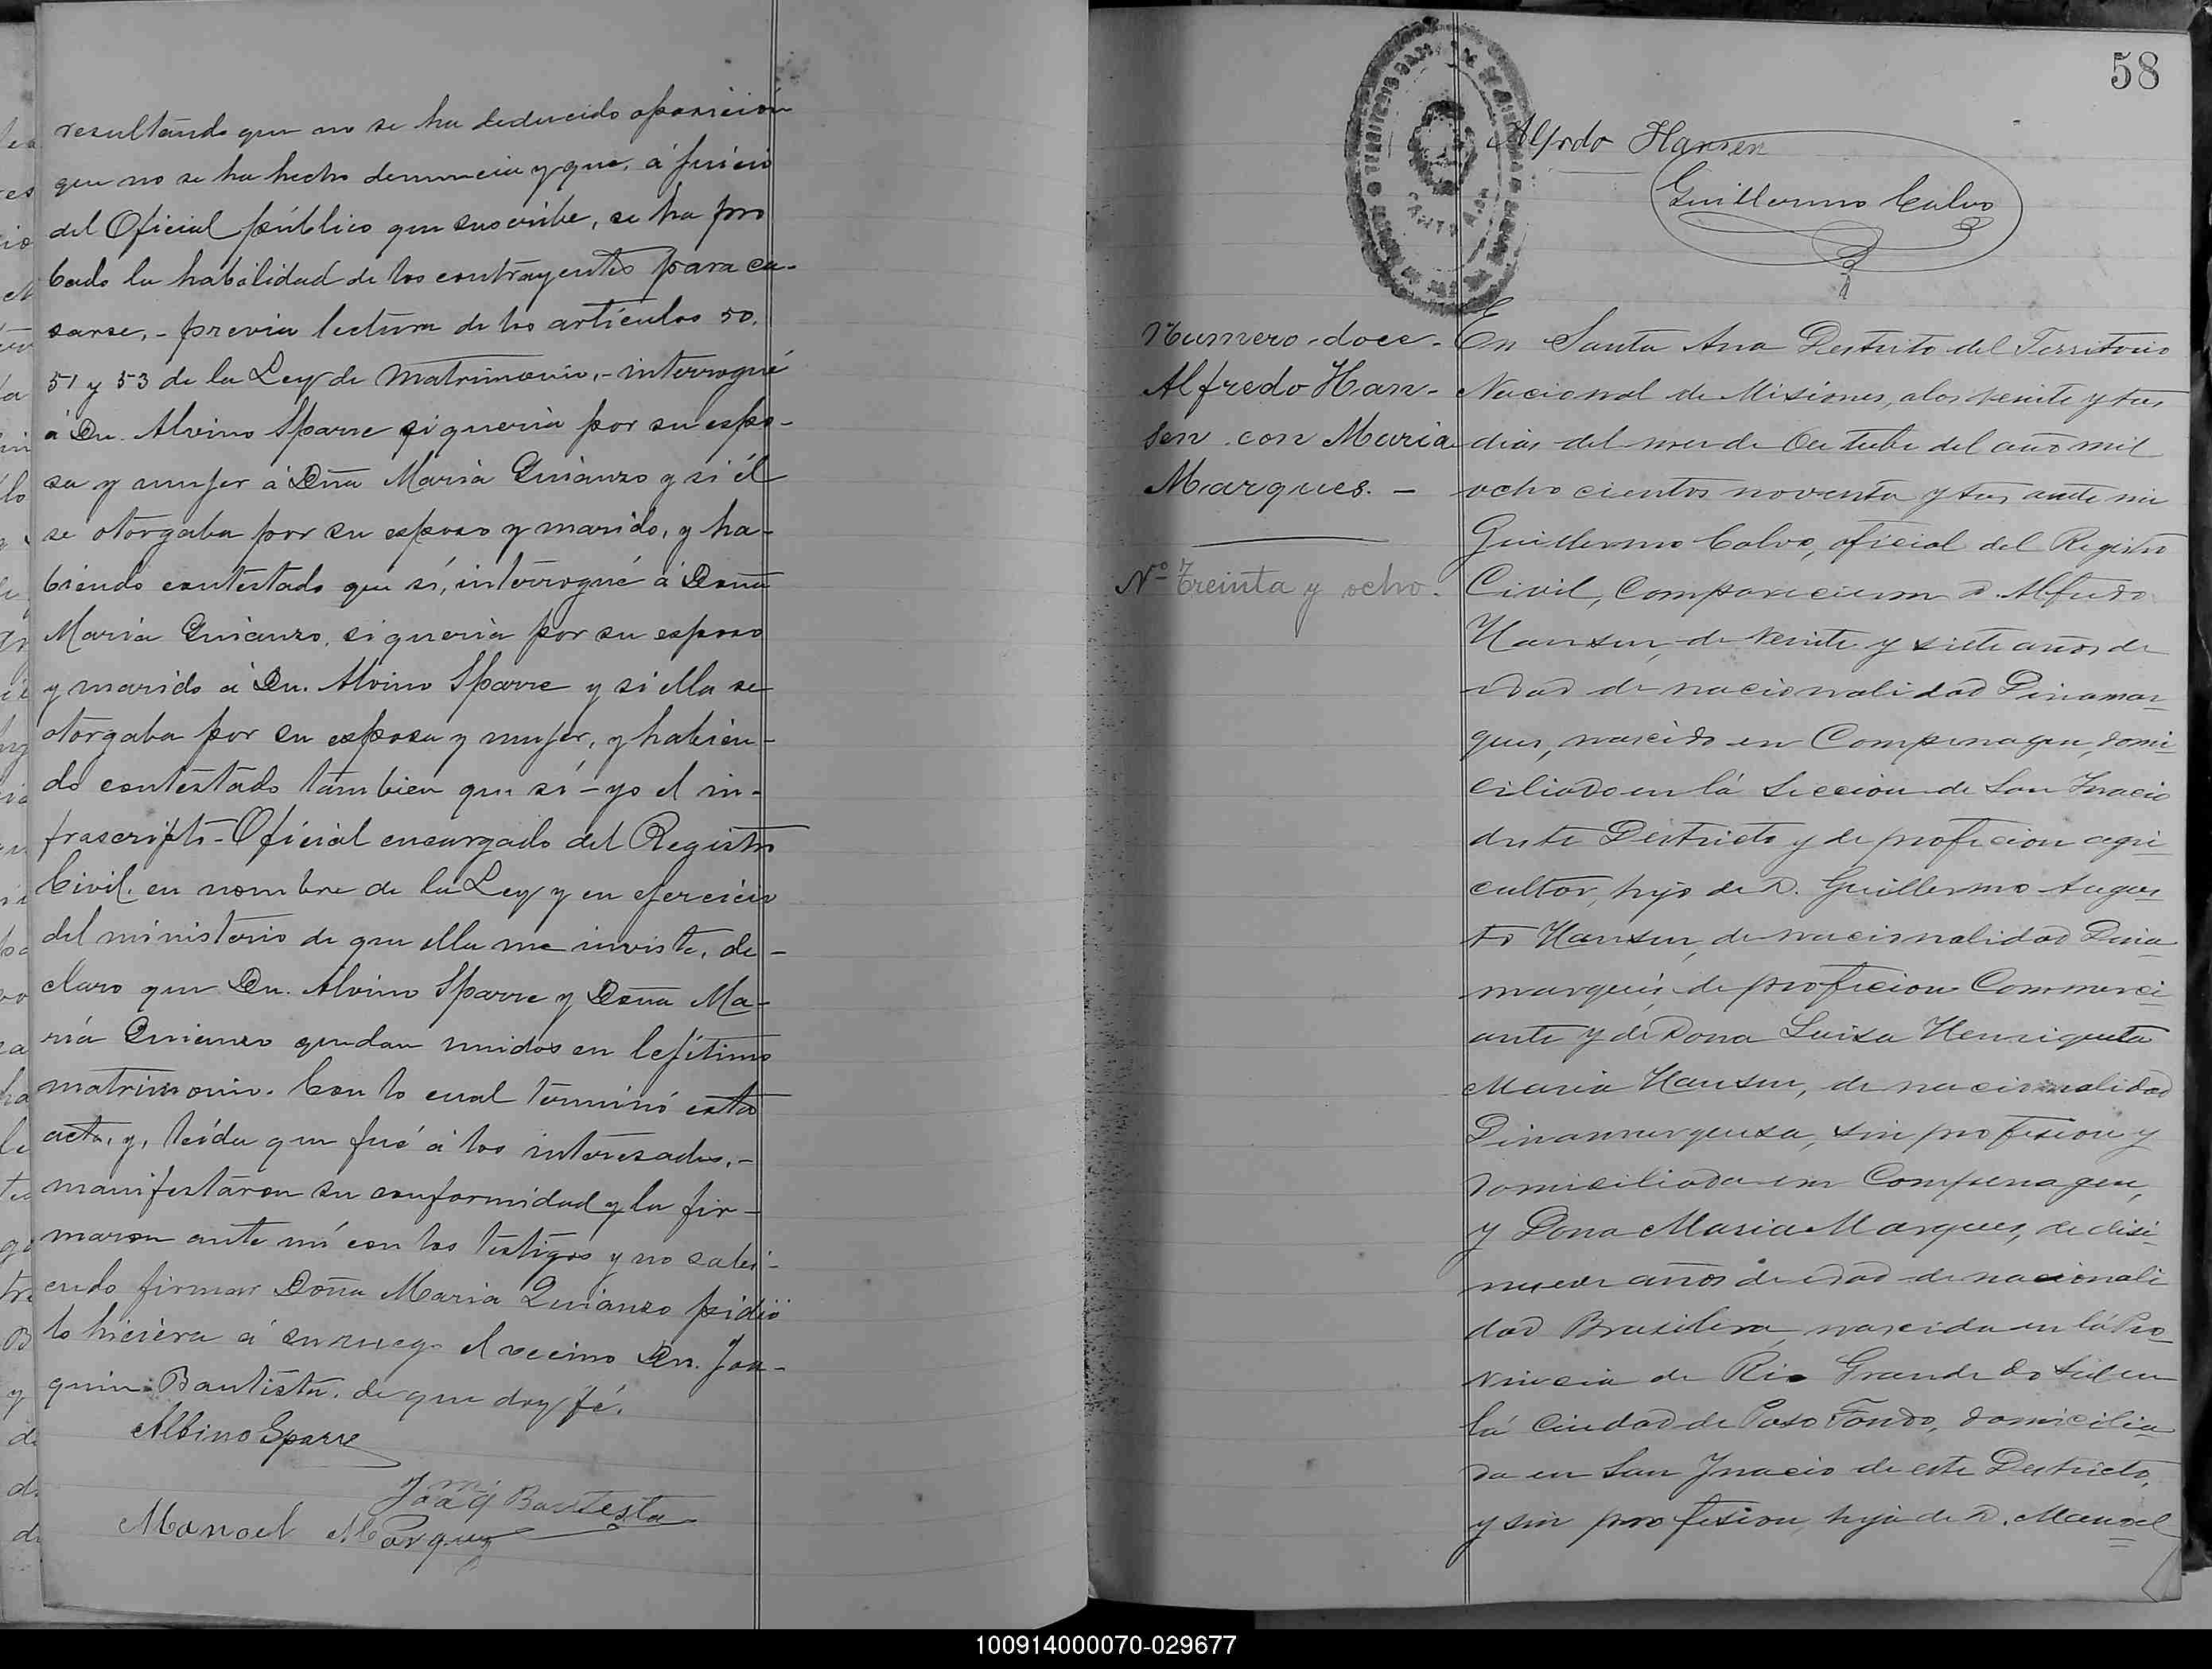 resultando que no se ha deducido oposición
que no se ha hecho denuncia y que, á juicio
del Oficial público que suscribe, se ha pro
bado la habilidad de los contrayentes para ca-
sarse, - previa lectura de los artículos 50,
51 y 53 de la Ley de Matrimonio, - interrogué
á Dn. Alvino Sparre si queria por su espo-
sa y mujer á Dña Maria Quianzo y si él
se otorgaba por su esposo y marido, y ha-
biendo contestado que sí, interrogué á Doña
Maria Quianzo, si queria por su esposo
y marido á Dn. Alvino Sparre y si ella se
otorgaba por su esposa y mujer, y habien-
do contestado tambien que sí - yo el in-
frascripto - Oficial encargado del Registro
Civil, en nombre de la Ley y en ejercicio
del ministerio de que ella me inviste, de-
claro que Dn. Alvino Sparre y Doña Ma-
ria Quianzo quedan unidos en lejítimo
matrimonio. Con lo cual terminó esta
acta, y, leída que fué á los interesados, -
manifestaron su conformidad y la fir-
maron ante mí con los testigos y no sabi-
endo firmar Doña Maria Quianzo pidió
lo hiciera á su ruego el vecino Dn. Joa-
quin Bautista, de que doy fé.
Albino Sparre
Joaqm Bautesta
Manoel Marques
58
Alfrdo Hansen
Guillermo Calvo
Numero doce.
Alfredo Han-
sen con Maria
Marques. -
No Treinta y ocho.
En Santa Ana Destrito del Territorio
Nacional de Misiones, a los veinte y tres
dias del mes de Octubre del año mil
ocho cientos noventa y tres ante mi
Guillermo Calvo, oficial del Registro
Civil, Comparecieron D. Alfredo
Hansen, de veinte y siete años de
edad de nacionalidad Dinamar-
ques, nascido en Compenagen, domi-
ciliado en lá Seccion de San Ynacio
deste Destricto y de profecion agri-
cultor, hijo de D. Guillermo Augus-
to Hansen, de nacionalidad Dina-
marqués, de profecion Commerci-
ante y de Dona Luisa Henriqueta
Maria Hansen, de nacionalidad
Dinamarquesa, sin profesion y
domiciliada em Compenagen,
y Dona Maria Marques, de disi-
nueve años de edad de nacionali
dad Brasilera, nascida en lá Pro-
vincia de Rio Grande do Sul en
lá Ciudad de Paso Fondo, domicilia-
da en San Ynacio de este Destricto,
y sin profesion, hija de D. Manoel
100914000070-029677